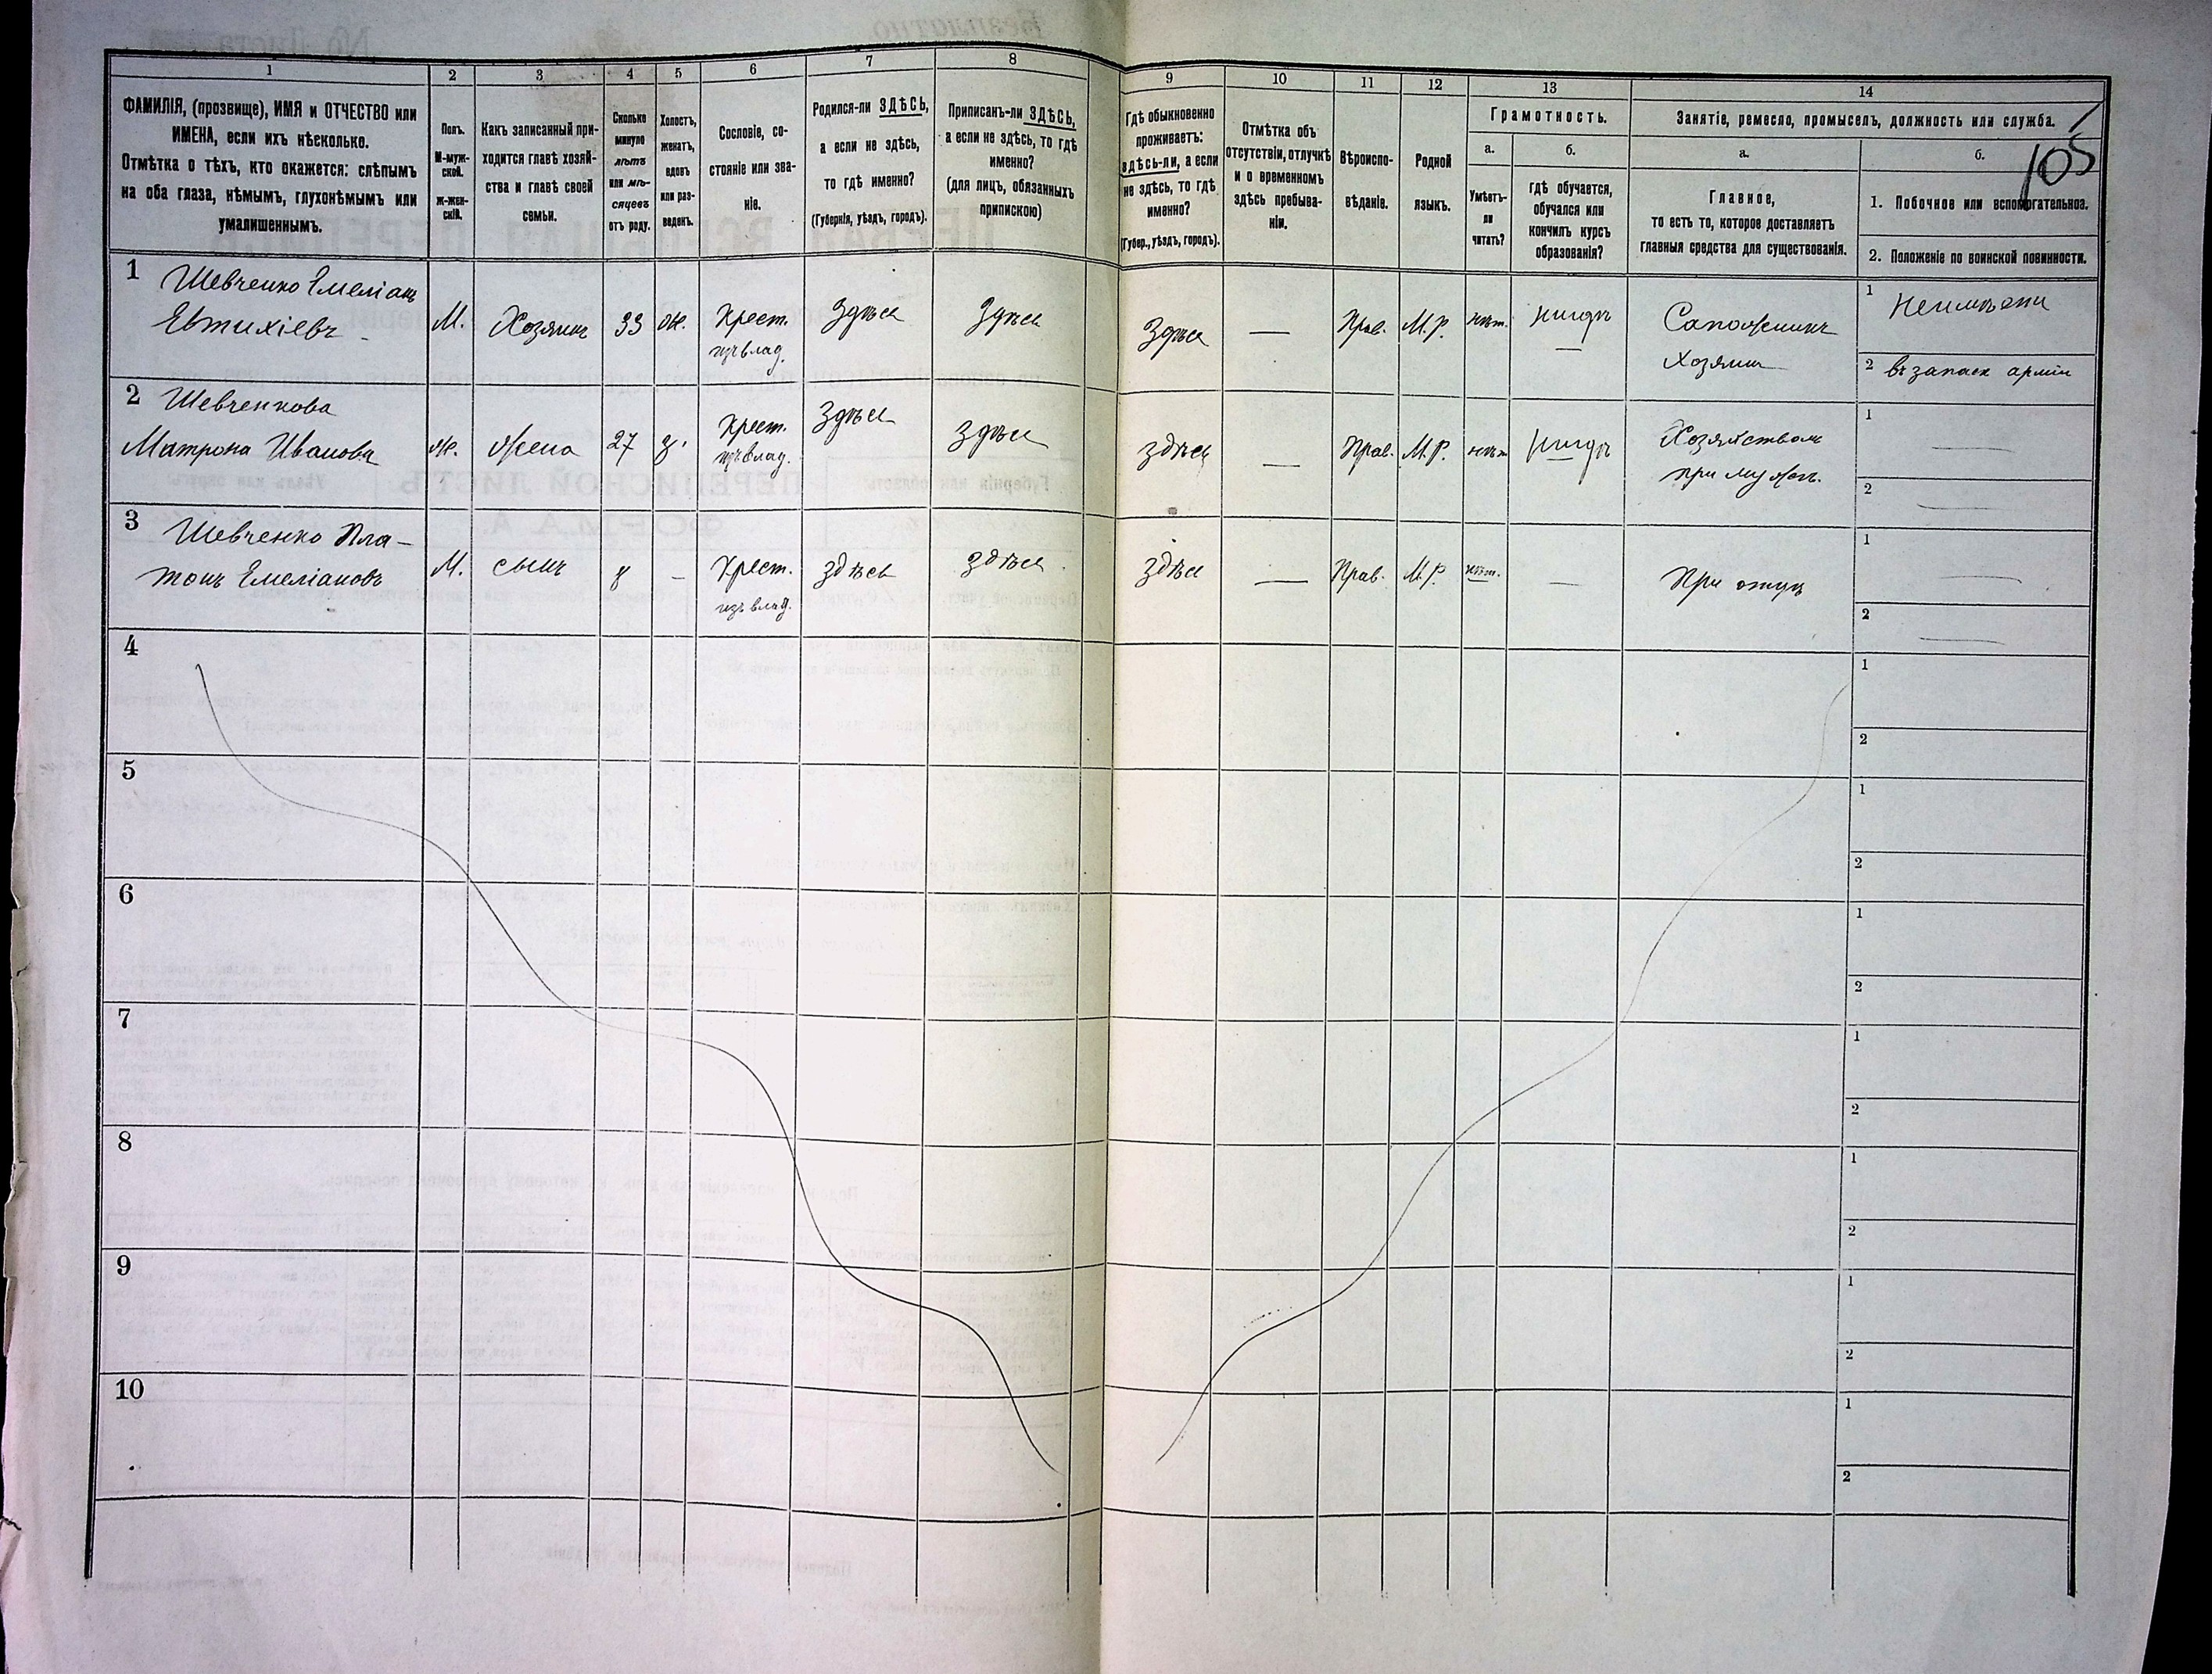 1 2 3 4 5 6 7 8 9 10 11 12 13 14
ФАМИЛІЯ, (прозвище), ИМЯ и ОТЧЕСТВО или
ИМЕНА, если ихъ нѣсколько.
Отмѣтка о тѣхъ, кто окажется: слѣпымъ
на оба глаза, нѣмымъ, глухонѣмымъ или
умалишеннымъ.
Полъ.
М-муж-
ской.
ж-жен-
скій.
Какъ записанный при-
ходится главѣ хозяй-
ства и главѣ своей
семьи.
Сколько
минуло
лѣтъ
или мѣ-
сяцевъ
отъ роду.
Холостъ,
женатъ,
вдовъ
или раз-
веденъ.
Сословіе, со-
стояніе или зва-
ніе.
Родился-ли ЗДѢСЬ,
а если не здѣсь,
то гдѣ именно?
(Губернія, уѣздъ, городъ).
Приписанъ-ли ЗДѢСЬ,
а если не здѣсь, то гдѣ
именно?
(для лицъ, обязанныхъ
припискою)
Гдѣ обыкновенно
проживаетъ:
здѣсь-ли, а если
не здѣсь, то гдѣ
именно?
(Губер., уѣздъ, городъ).
Отмѣтка объ
отсутствіи, отлучкѣ
и о временномъ
здѣсь пребыва-
ніи.
Вѣроиспо-
вѣданіе.
Родной
языкъ.
Грамотность.
а.
Умѣетъ-
ли
читать?
б.
гдѣ обучается,
обучался или
кончилъ курсъ
образованія?
Занятіе, ремесло, промыселъ, должность или служба.
105
а.
Главное,
то есть то, которое доставляетъ
главныя средства для существованія.
б.
1. Побочное или вспомогательное.
2. Положеніе по воинской повинности.
1 Шевченко Емеліанъ
Евтихіевъ М. Хозяинъ 33 ж. Крест.
изъ влад. Здѣсь Здѣсь Здѣсь — Прав. М.Р. нѣт. нигдѣ Сапожникъ
Хозяинъ
1 Неимѣетъ
2 въ запасѣ арміи
2 Шевченкова
Матрона Иванова ж. Жена 27 з. Крест.
изъ влад. Здѣсь здѣсь здѣсь — Прав. М.Р. нѣт нигдѣ Хозяйством
при мужѣ.
1 —
2 —
3 Шевченко Пла-
тонъ Емеліановъ М. сынъ 8 – Крест.
изъ влад. здѣсь здѣсь здѣсь — Прав. М.Р. нѣт. — При отцѣ
1 —
2 —
4 1
2
5 1
2
6 1
2
7 1
2
8 1
2
9 1
2
10 1
2